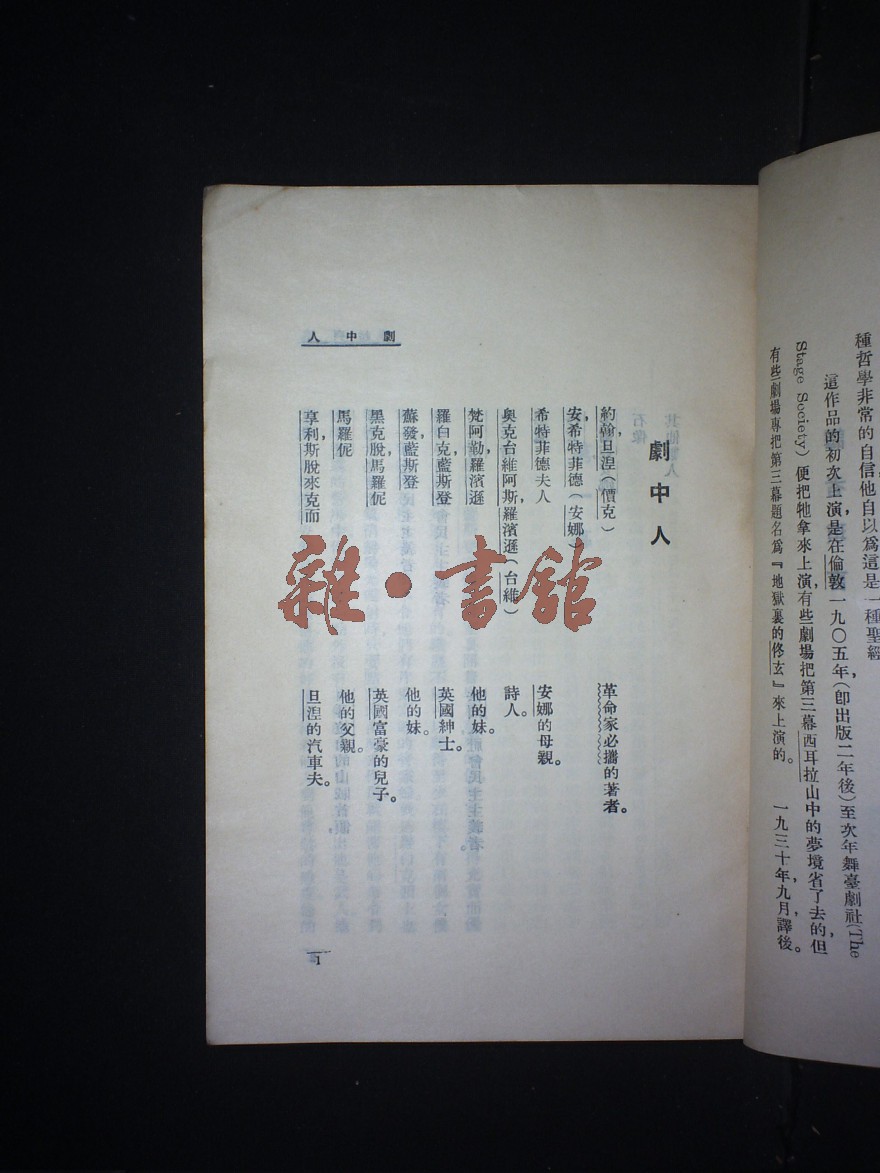 種哲學非常的自信他自以爲這是一種聖經
這作品的初次上演，是在倫敦一九〇五年（卽出版二年後）至次年舞臺劇社（The
Stage Society）便把牠拿來上演，有些劇場把第三幕西耳拉山中的夢境省了去的，但
有些劇場專把第三幕題名爲『地獄裏的修玄』來上演的。
一九三十年九月，譯後。
劇中人
劇中人
約翰，旦湼（價克） 革命家必攜的著者。
安，希特菲德（安娜）
希特菲德夫人 安娜的母親。
奧克台維阿斯，羅濱遜（台維） 詩人。
梵阿勒，羅濱遜 他的妹。
羅白克，藍斯登 英國紳士。
蘇發，藍斯登 他的妹。
黑克脫，馬羅伲 英國富豪的兒子。
馬羅伲 他的父親。
亨利斯脫來克而 旦湼的汽車夫。
1
雜·書館